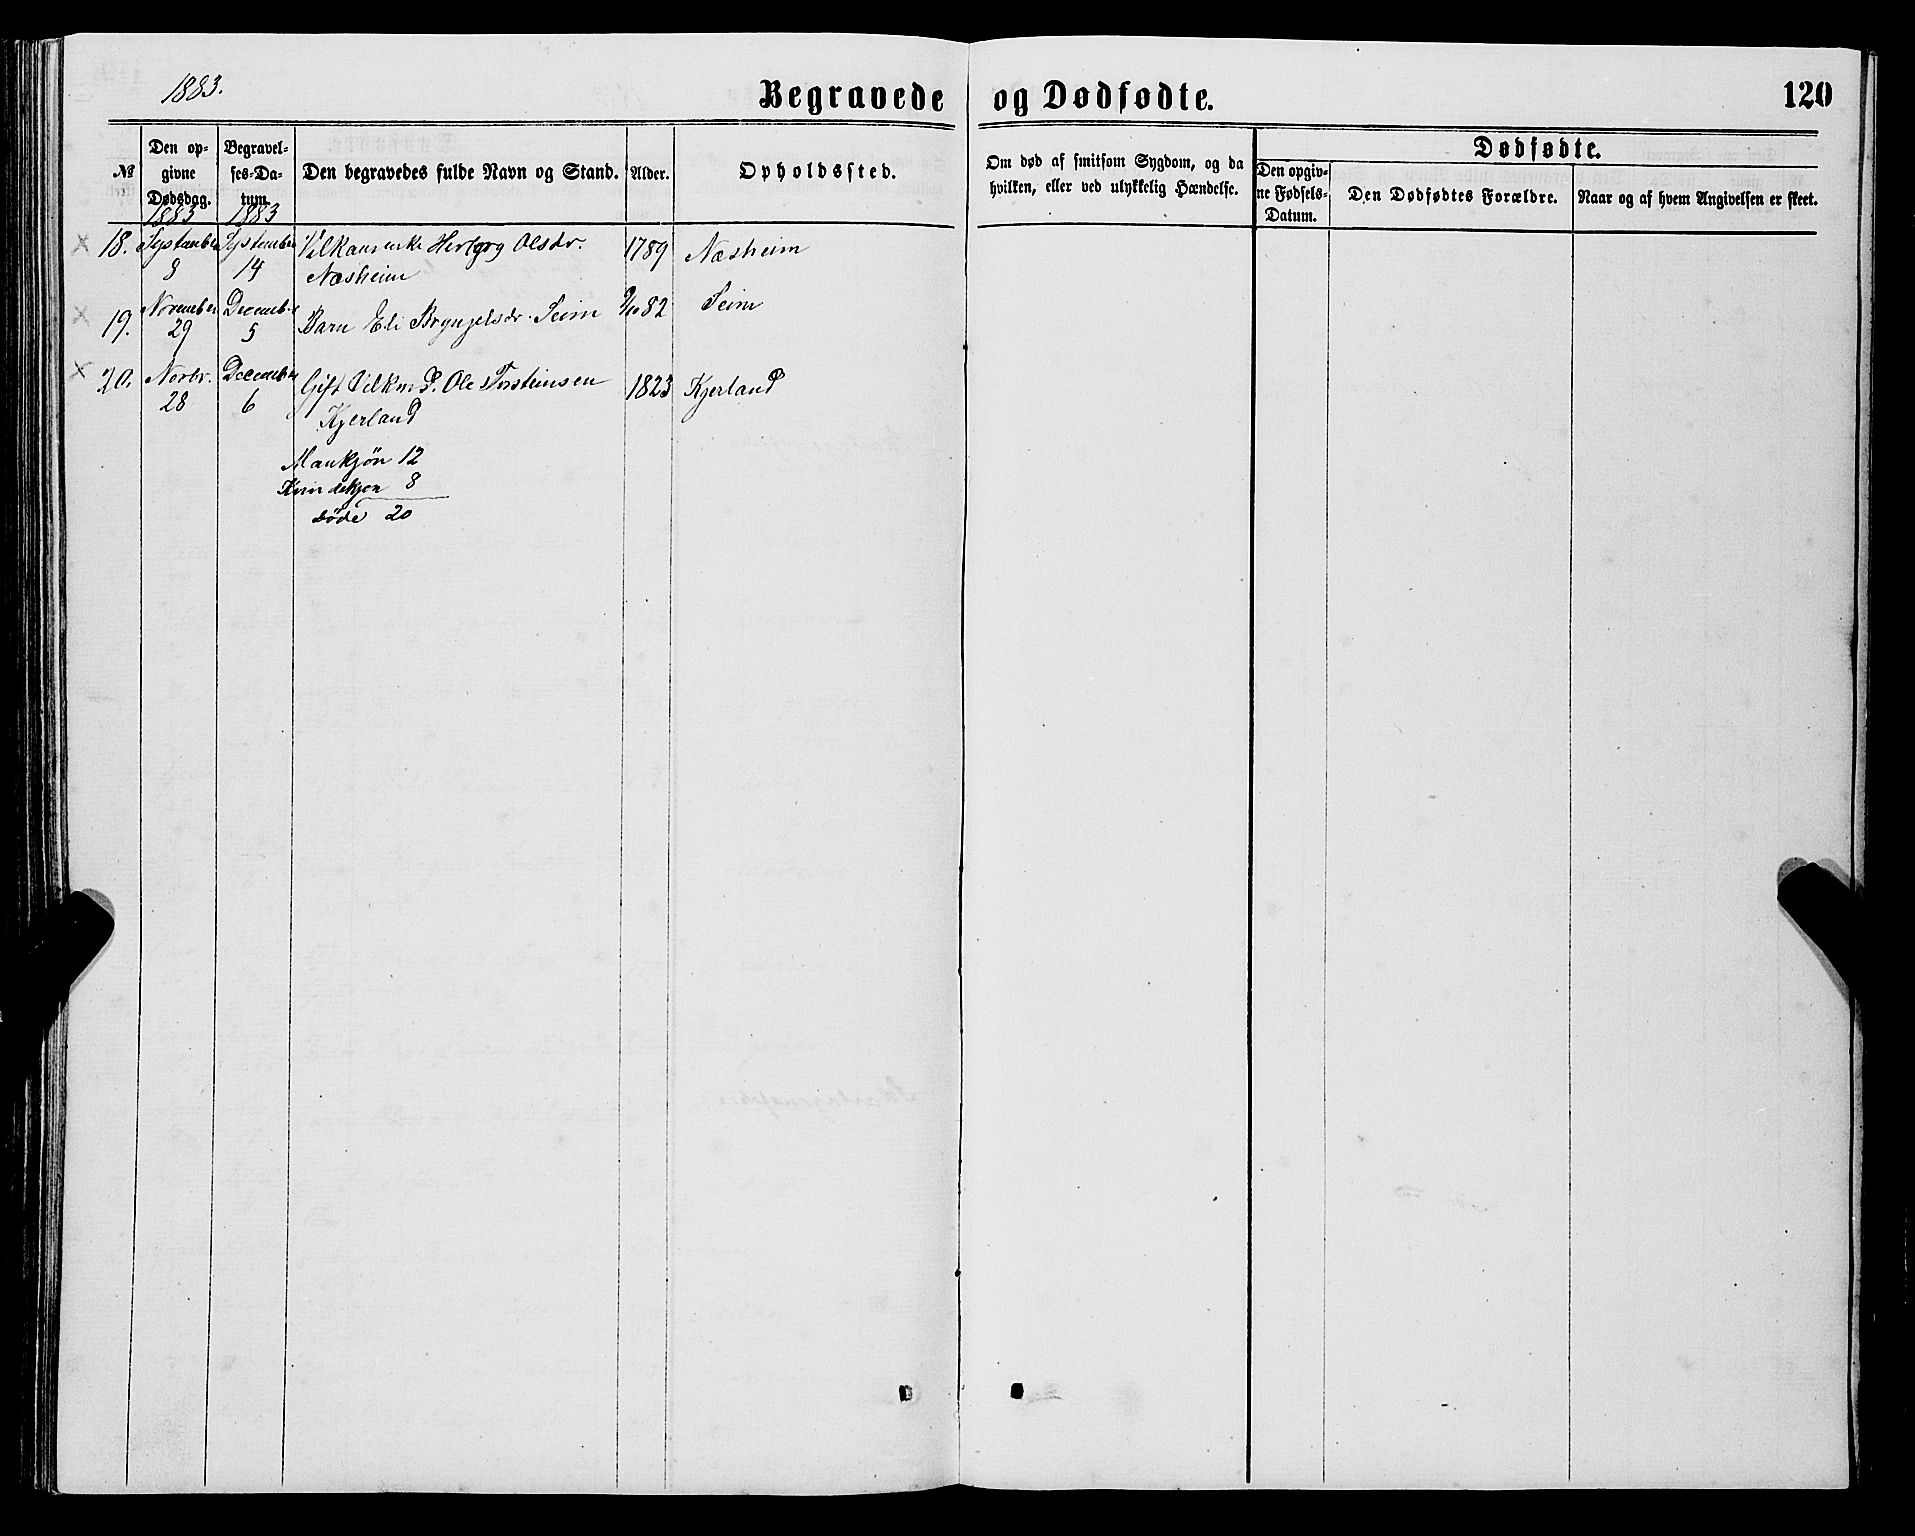 1883.
Begravede og Dødfødte.
120
№
Den op-
givne
Dødsdag.
Begravel-
ses-Da-
tum.
Den begravedes fulde Navn og Stand.
Alder.
Opholdssted.
Om død af smitsom Sygdom, og da
hvilken, eller ved ulykkelig Hændelse.
Dødfødte.
Den opgiv-
ne Fødsels-
Datum.
Den Dødfødtes Forældre.
Naar og af hvem Angivelsen er skeet.
1883 1883
18. September September Herborg Olsdr. 1789 Næsheim
8 14 Næsheim
19. November December Barn Eli Bryngelsdr. Seim 82 Seim
29 5
20. Novbr. December Gift Ole Torsteinsen 1823 Kjerland
28 6 Kjerland
Mankjön 12
Kvindekjøn 8
Både 20